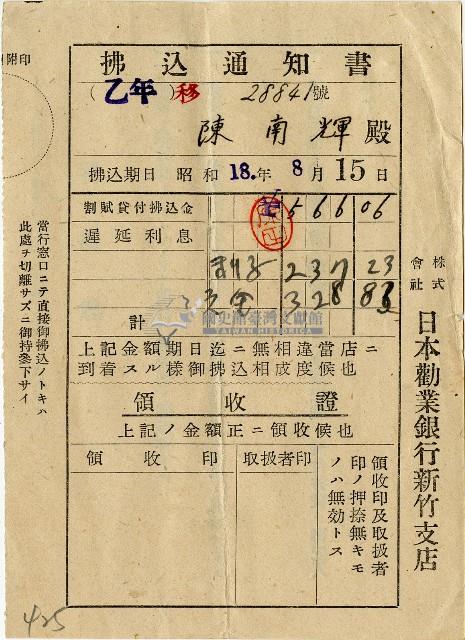 拂込通知書
(乙年)移 28841號
陳南輝殿
拂込期日 昭和18.年8月15日
割賦貸付拂込金 566 06
遲延利息
利子 237 23
元金 328 83
計
上記金額期日迄ニ無相違當店ニ
到着スル樣御拂込相成度候也
領收證
上記ノ金額正ニ領收候也
領收印
取扱者印
領收印及取扱者
印ノ押捺無キモ
ノハ無効トス
株式會社 日本勸業銀行新竹支店
當行窓口ニテ直接御拂込ノトキハ
此處ヲ切離サズニ御持參下サイ
附印
臺史館臺灣文獻館
TAIWAN HISTORICA
425